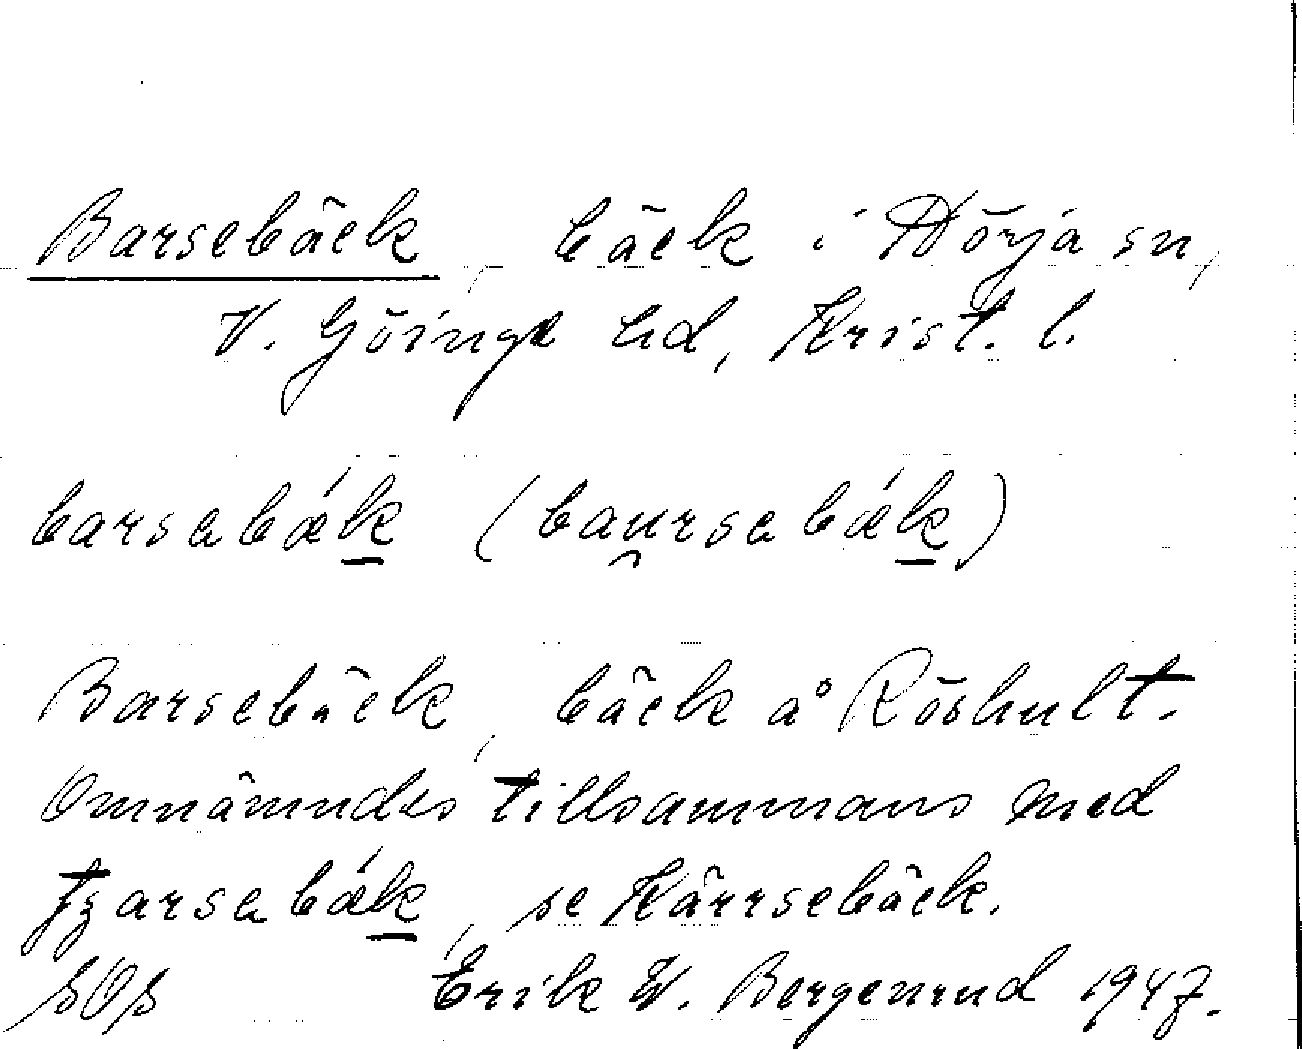 Barsebäck, bäck i Nörja sn,
V. Göinge hd, Krist. l.
barsabǽk (bau̯rsabǽk)
Barsebäck, bäck å Röshult.
Omnämndes tillsammans med
tʒarsabǽk, se Kärrsebäck.
SOS Erik W. Bergenrud 1947.